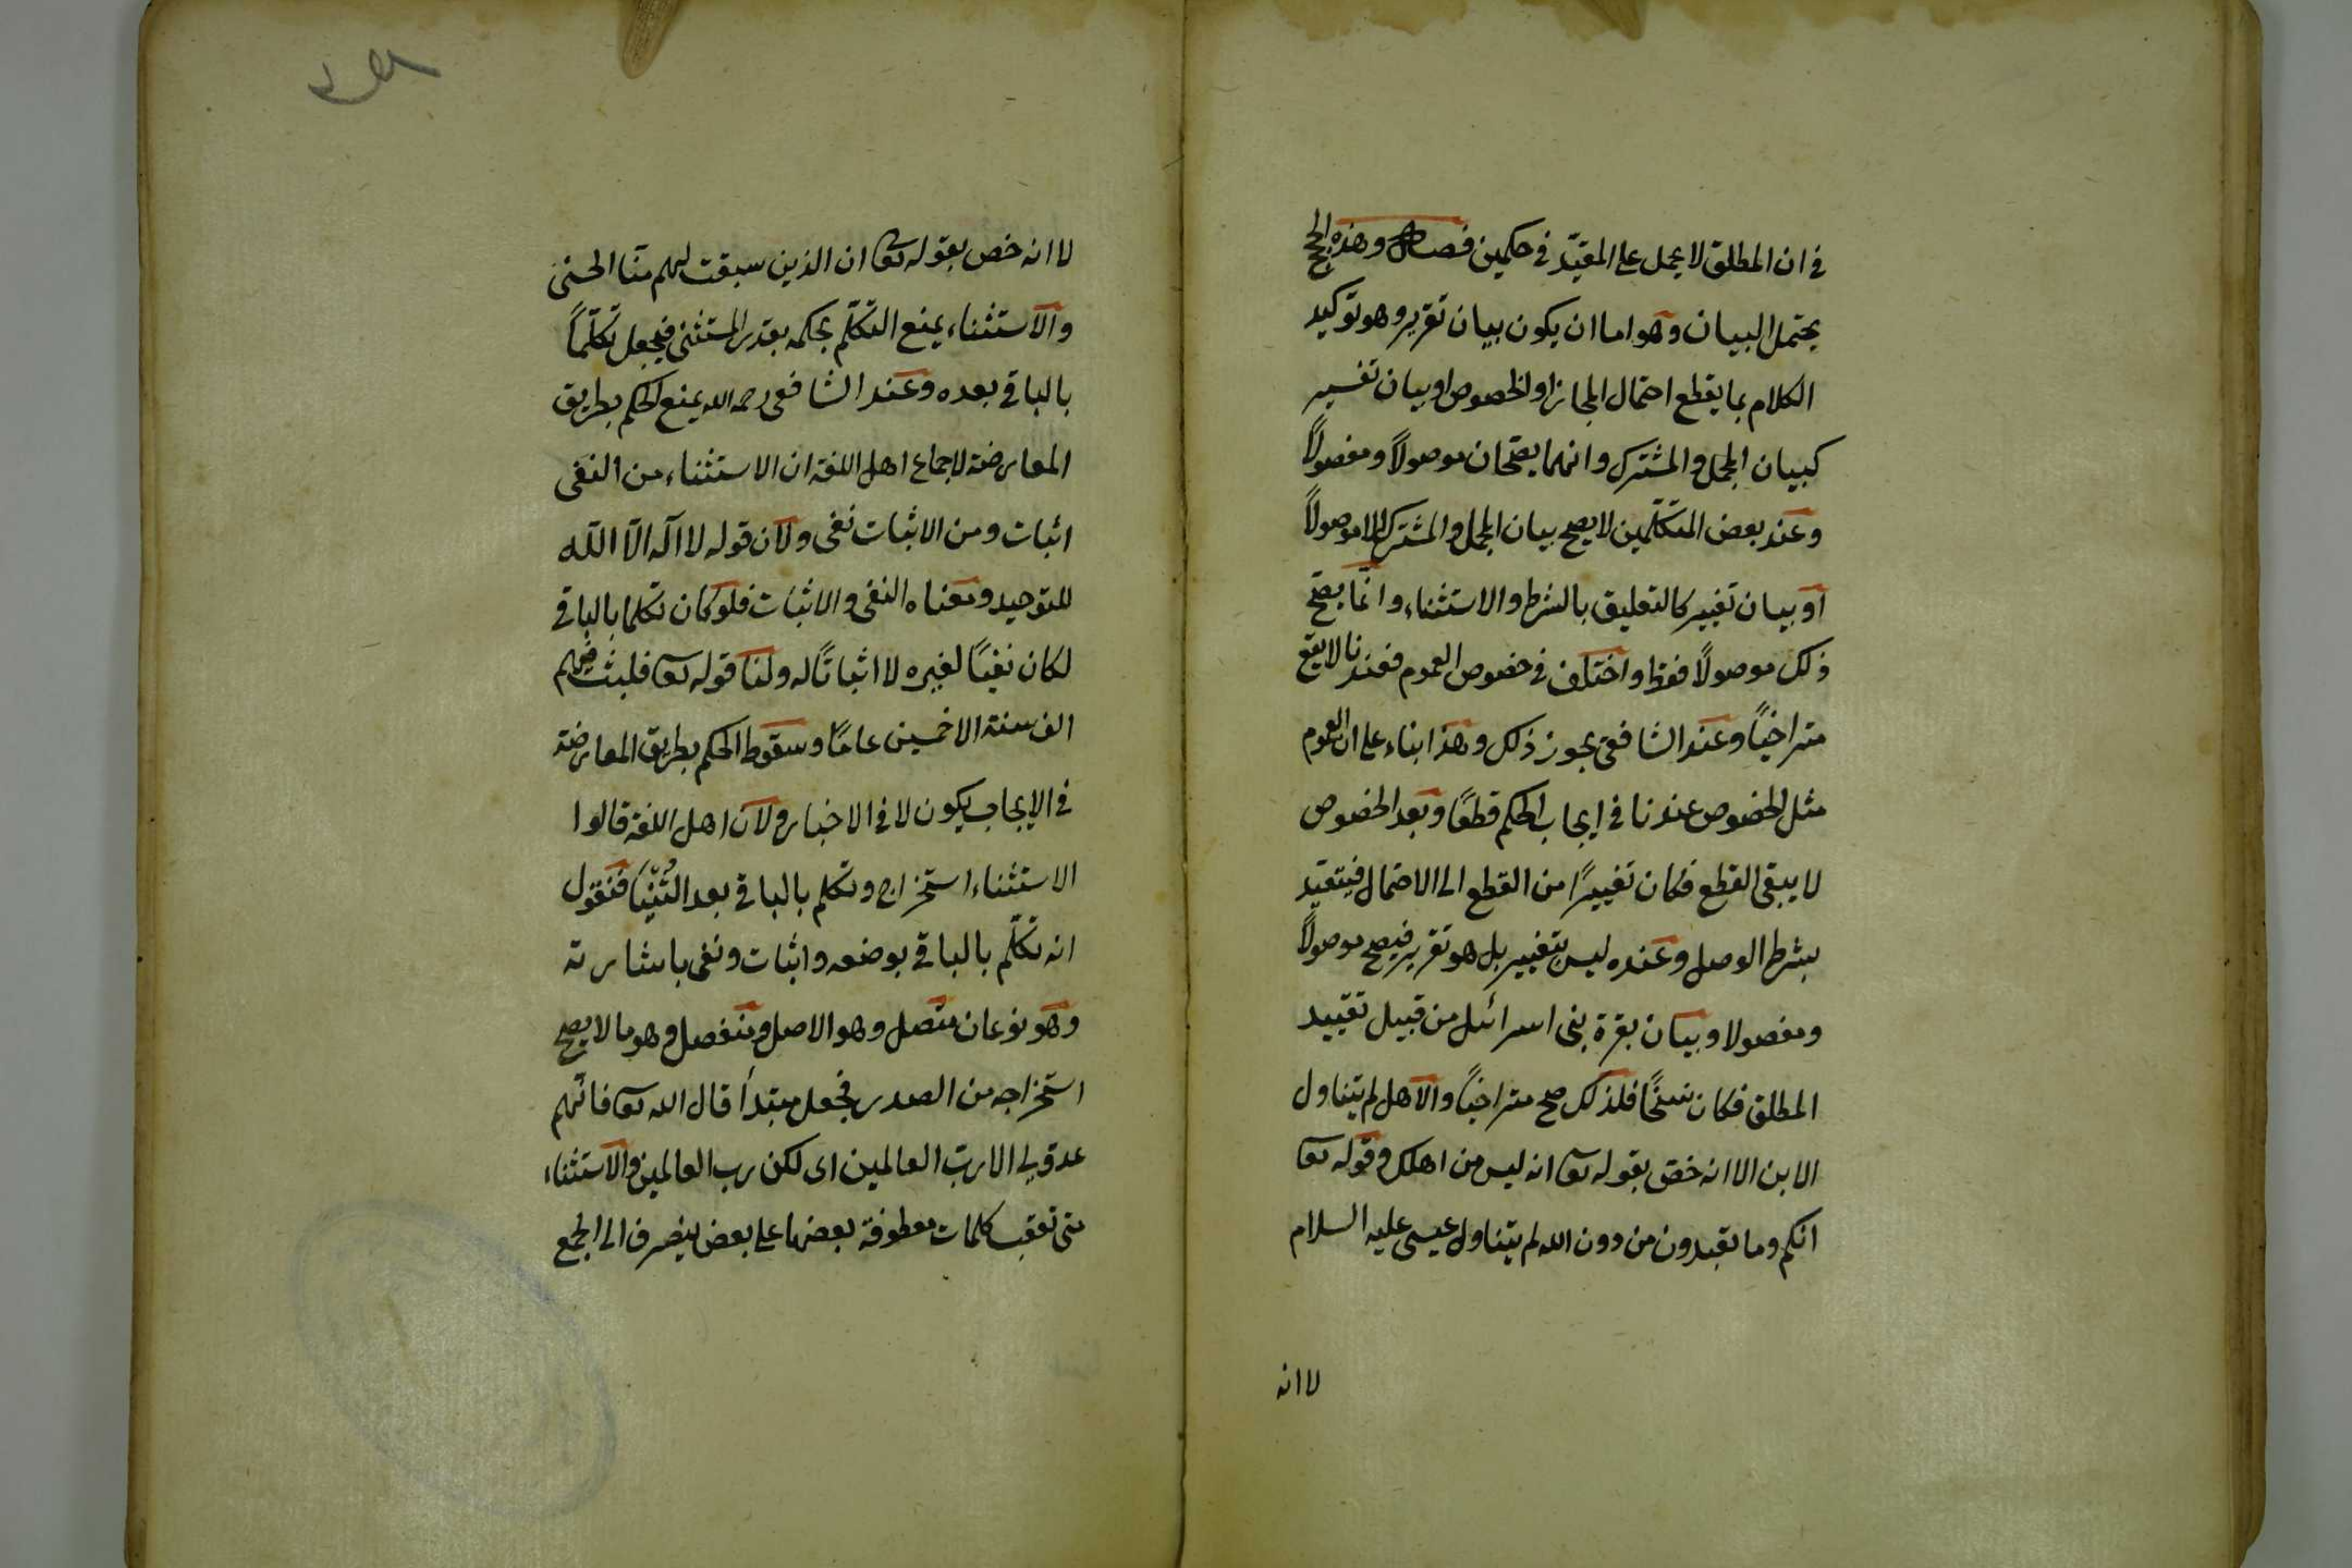 في ان المطلق لا يحمل على المقيّد في حكمين فصل وهذه الحجج
يحتمل البيان وهو اما ان يكون بيان تقرير وهو توكيد
الكلام بما يقطع احتمال المجاز او الخصوص او بيان تفسير
كبيان المجمل والمشترك وانهما يصحّان موصولاً ومفصولاً
وعند بعض المتكلّمين لا يصح بيان المجمل والمشترك الا موصولاً
او بيان تغيير كالتعليق بالشرط والاستثناء وانّما يصحّ
ذلك موصولاً فقط واختلف في خصوص العموم فعندنا لا يقع
متراخياً وعند الشافعى يجوز ذلك وهذا بناء على ان العموم
مثل الخصوص عندنا في ايجاب الحكم قطعًا وبعد الخصوص
لا يبقى القطع فكان تغييرًا من القطع الى الاحتمال فيتقيد
بشرط الوصل وعنده ليس بتغيير بل هو تقرير فيصح موصولاً
ومفصولا وبيان بقرة بنى اسرائيل من قبيل تقييد
المطلق فكان نسخًا فلذلك صح متراخياً والاهل لم يتناول
الابن الا انه خصّ بقوله تعا انه ليس من اهلك وقوله تعا
انكم وما تعبدون من دون الله لم يتناول عيسى عليه السلام
لا انه
لا انه خص بقوله تعا ان الذين سبقت لهم منّا الحسنى
والاستثناء يمنع التكلّم بحكمه بقدر المستثنى فيجعل تكلّماً
بالباقي بعده وعند الشافعى رحمه الله يمنع الحكم بطريق
المعارضة لاجماع اهل اللغة ان الاستثناء من النفى
اثبات ومن الاثبات نفى ولان قوله لا اله الّا اللّه
للتوحيد ومعناه النفى والاثبات فلو كان تكلما بالباقي
لكان نفيًا لغيره لا اثباتًا له ولنا قوله تعا فلبث فيهم
الف سنة الا خمسين عامًا وسقوط الحكم بطريق المعارضة
في الايجاب يكون لا في الاخبار ولان اهل اللغة قالوا
الاستثناء استخراج وتكلم بالباقي بعد الثُنْيَا فنقول
انه تكلّم بالباقي بوضعه واثبات ونفى باشارته
وهو نوعان متّصل وهو الاصل ومنفصل وهو ما لا يصح
استخراجه من الصدر فجعل مبتدأ قال الله تعا فانّهم
عدوّ لى الا ربّ العالمين اى لكن رب العالمين والاستثناء
متى تعقب كلمات معطوفة بعضها على بعض ينصرف الى الجميع